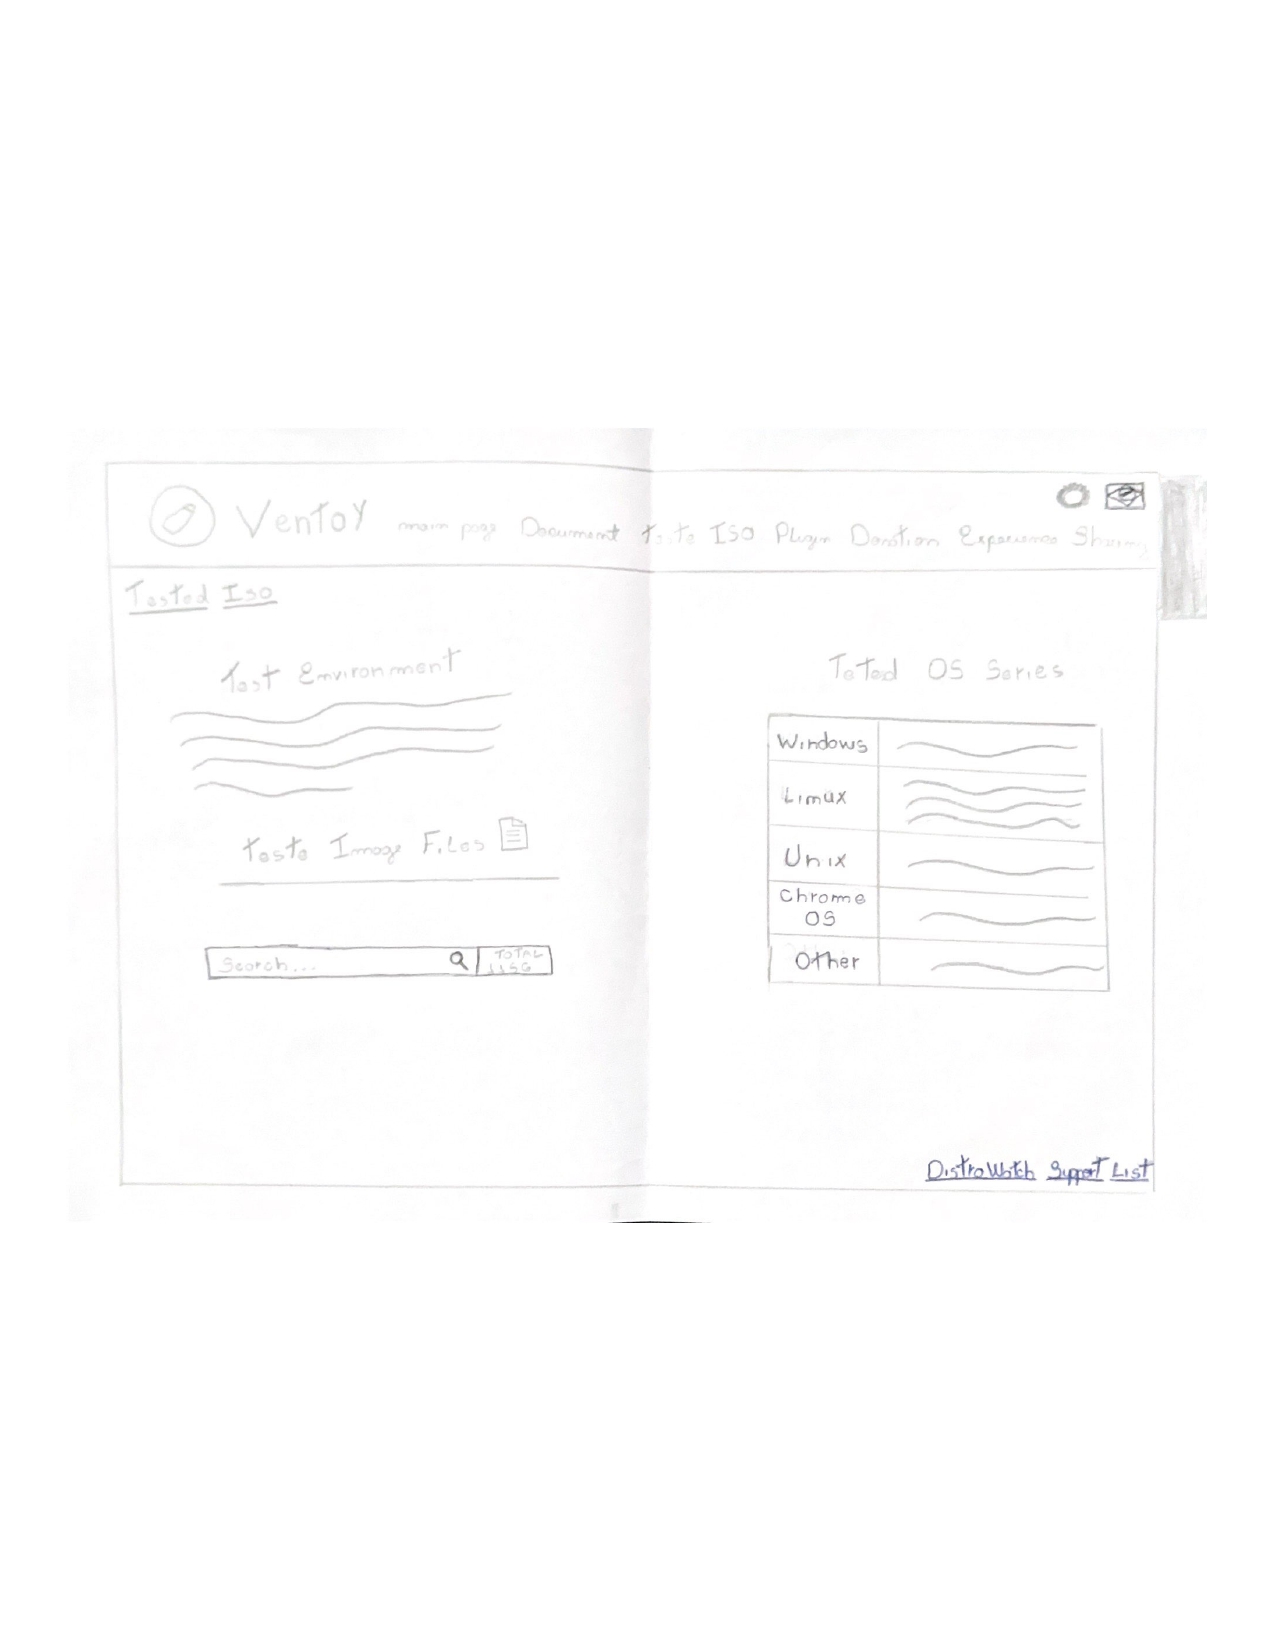 Ventoy main page Document teste ISO Plugin Donation Experience Sharing
Tested Iso
Test Environment
Teste Image Files
Search...
TOTAL
1156
Teted OS Series
Windows
Limux
Unix
Chrome
OS
Other
DistroWatch Support List